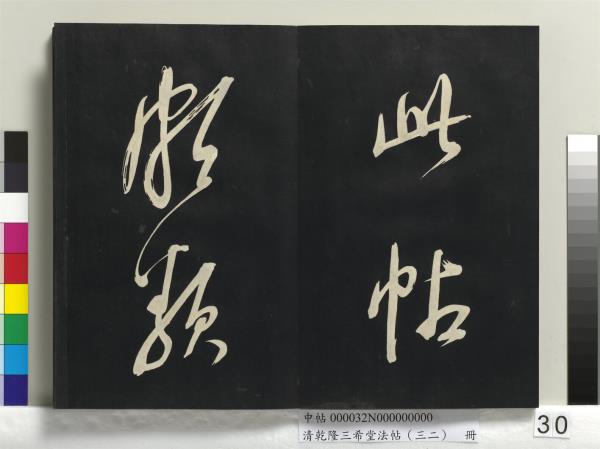 此帖
頗類
中帖 000032N000000000
清乾隆三希堂法帖（三二） 冊
30